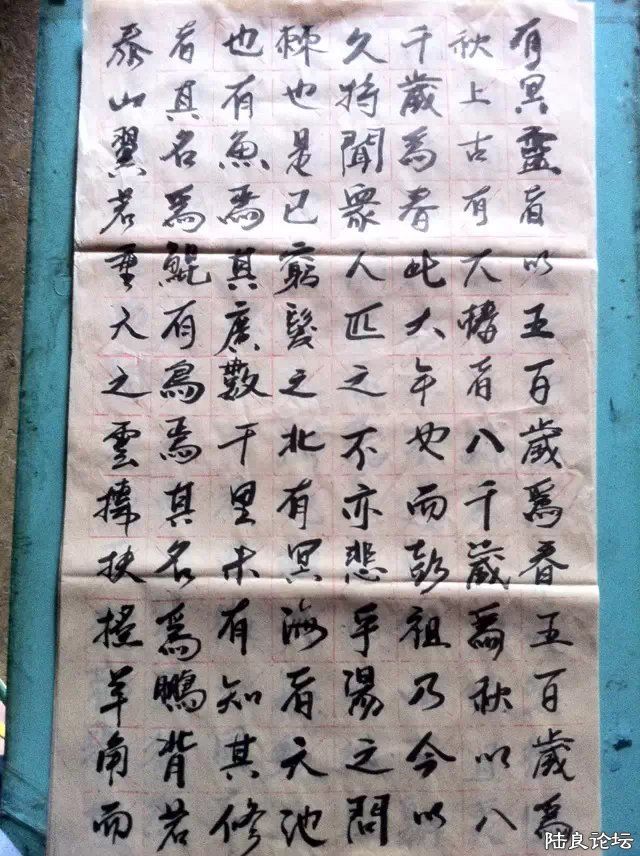 有冥靈者以五百歲爲春五百歲爲
秋上古有大椿者八千歲爲秋以八
千歲爲春此大年也而彭祖乃今以
久特聞眾人匹之不亦悲乎湯之問
棘也是已窮髮之北有冥海者天池
也有魚焉其廣數千里未有知其修
者其名爲鯤有鳥焉其名爲鵬背若
泰山翼若垂天之雲摶扶摇羊角而
陆良论坛